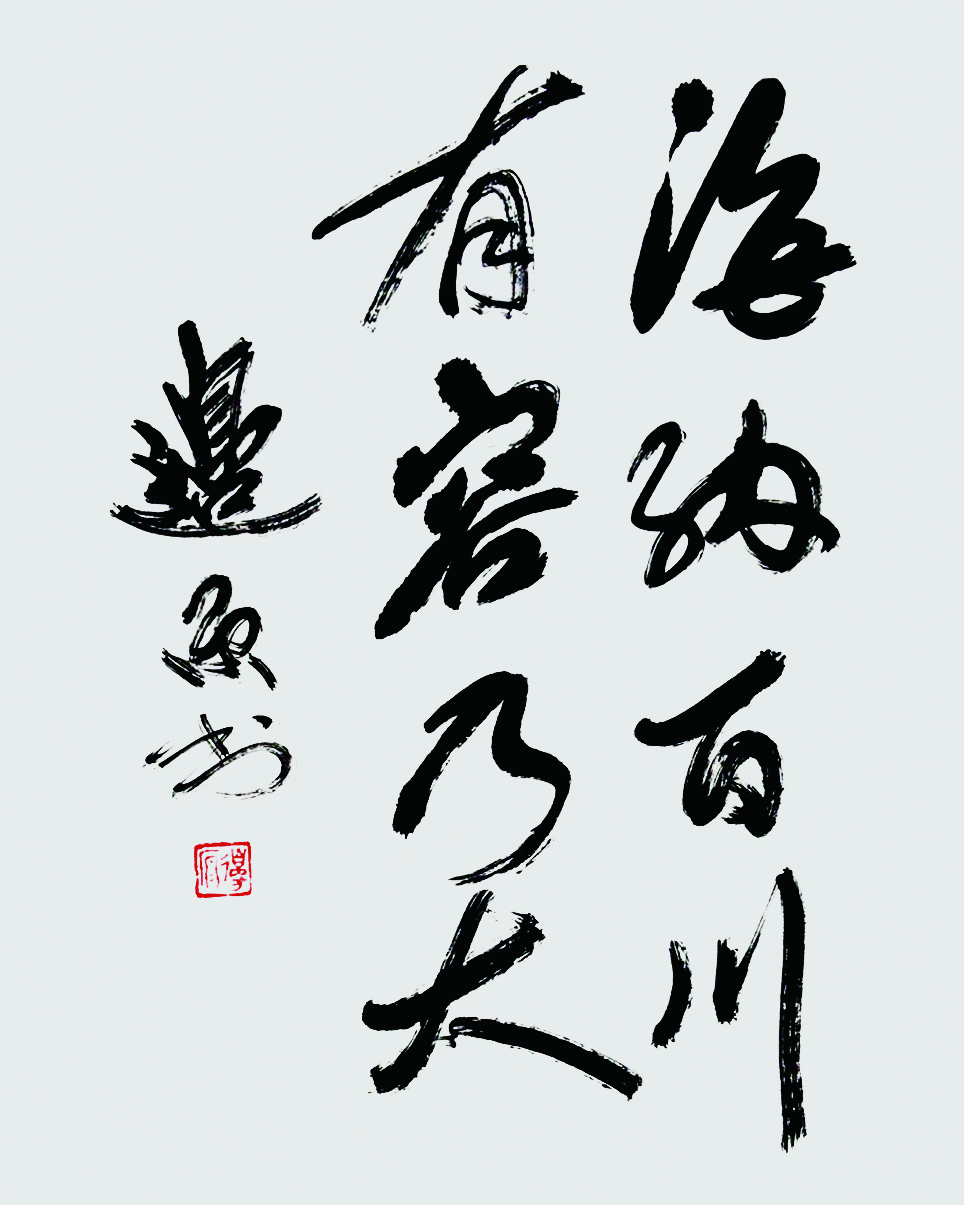 海纳百川
有容乃大
书